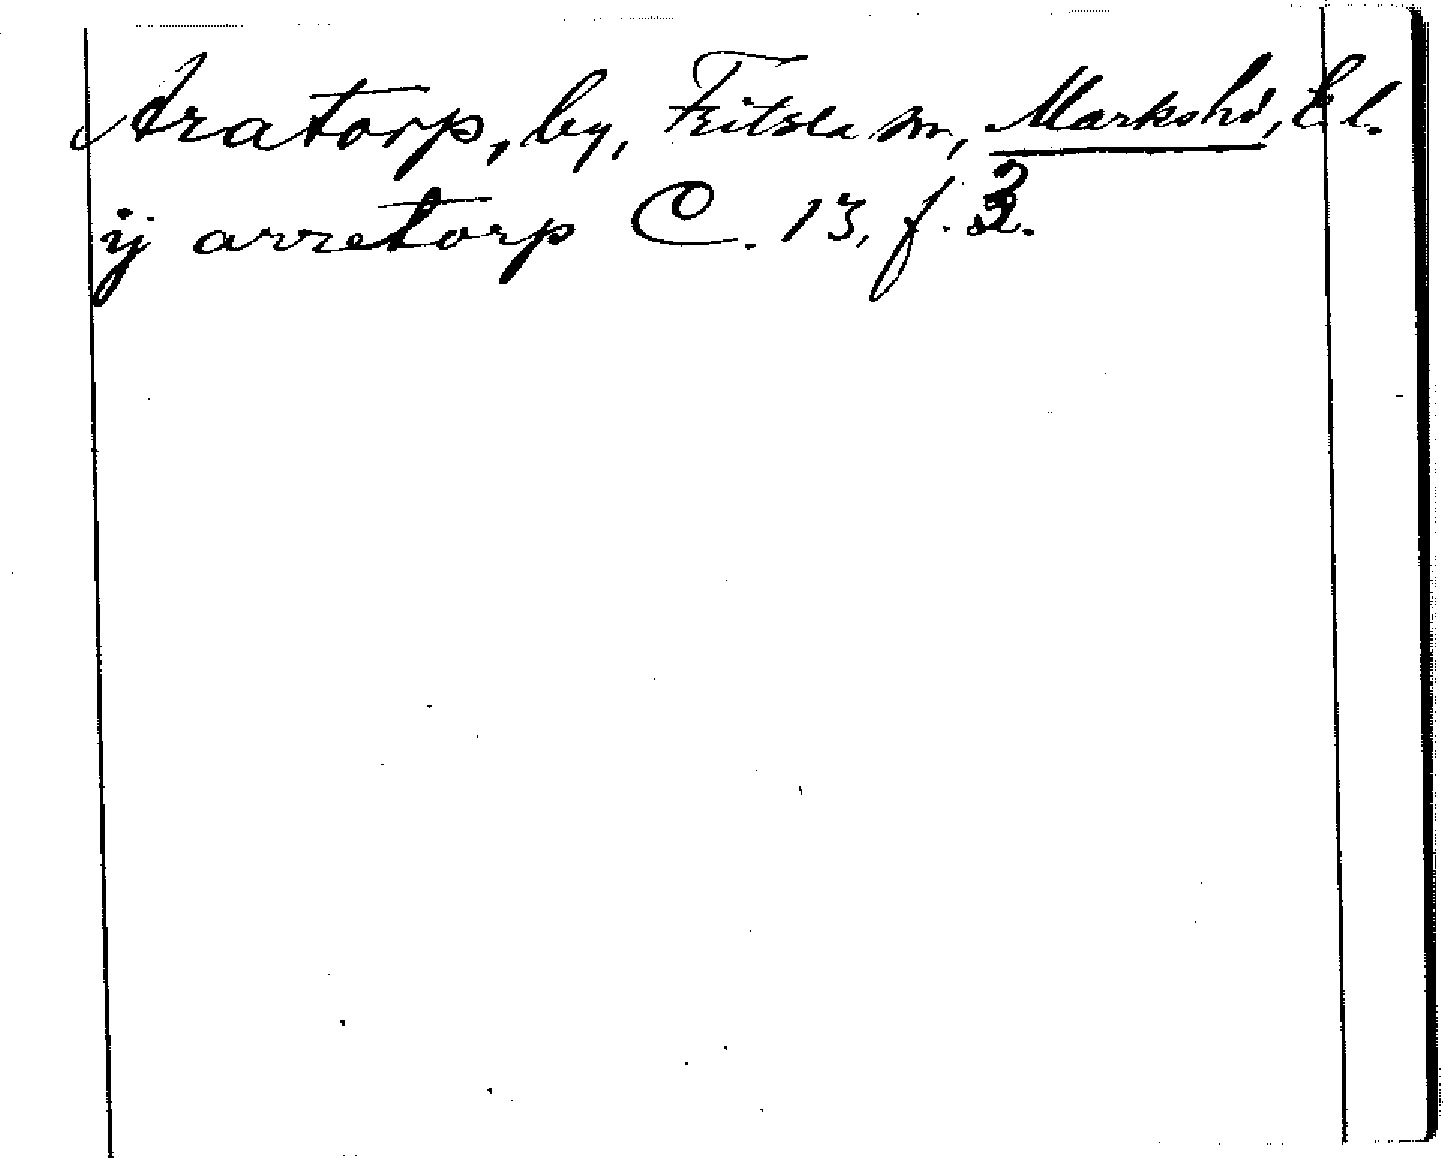 Aratorp, by, Fritsla sn, Markshd, Äl.
ij arretorp C. 13, f. 32.